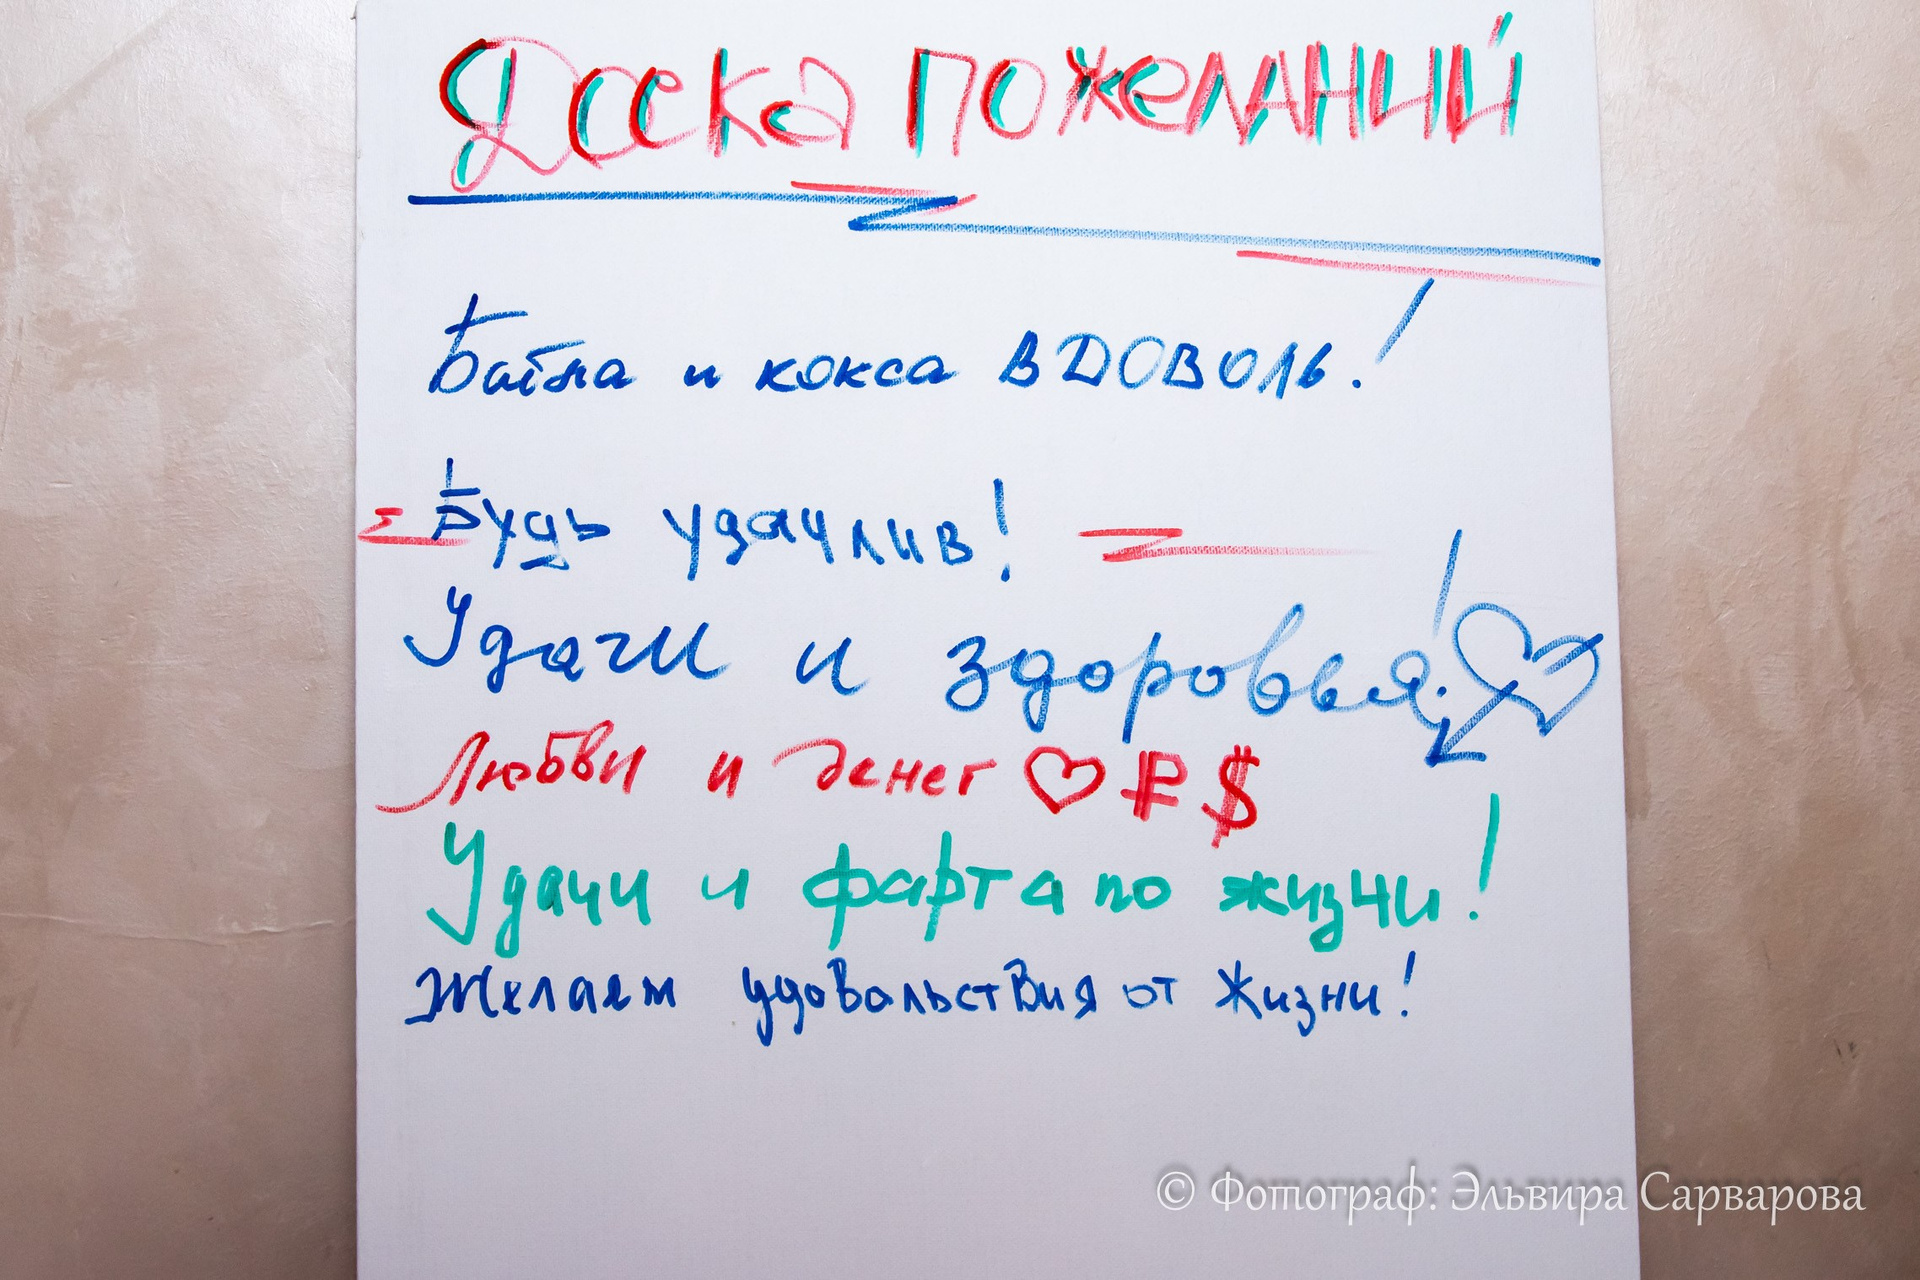 Доска пожеланий
и кокса вдоволь!
Будь удачлив!
Удачи и здоровья!
Любви и денег ♡ ₽ $
Удачи и фарта по жизни!
Желаем удовольствия от жизни!
© Фотограф: Эльвира Сарварова